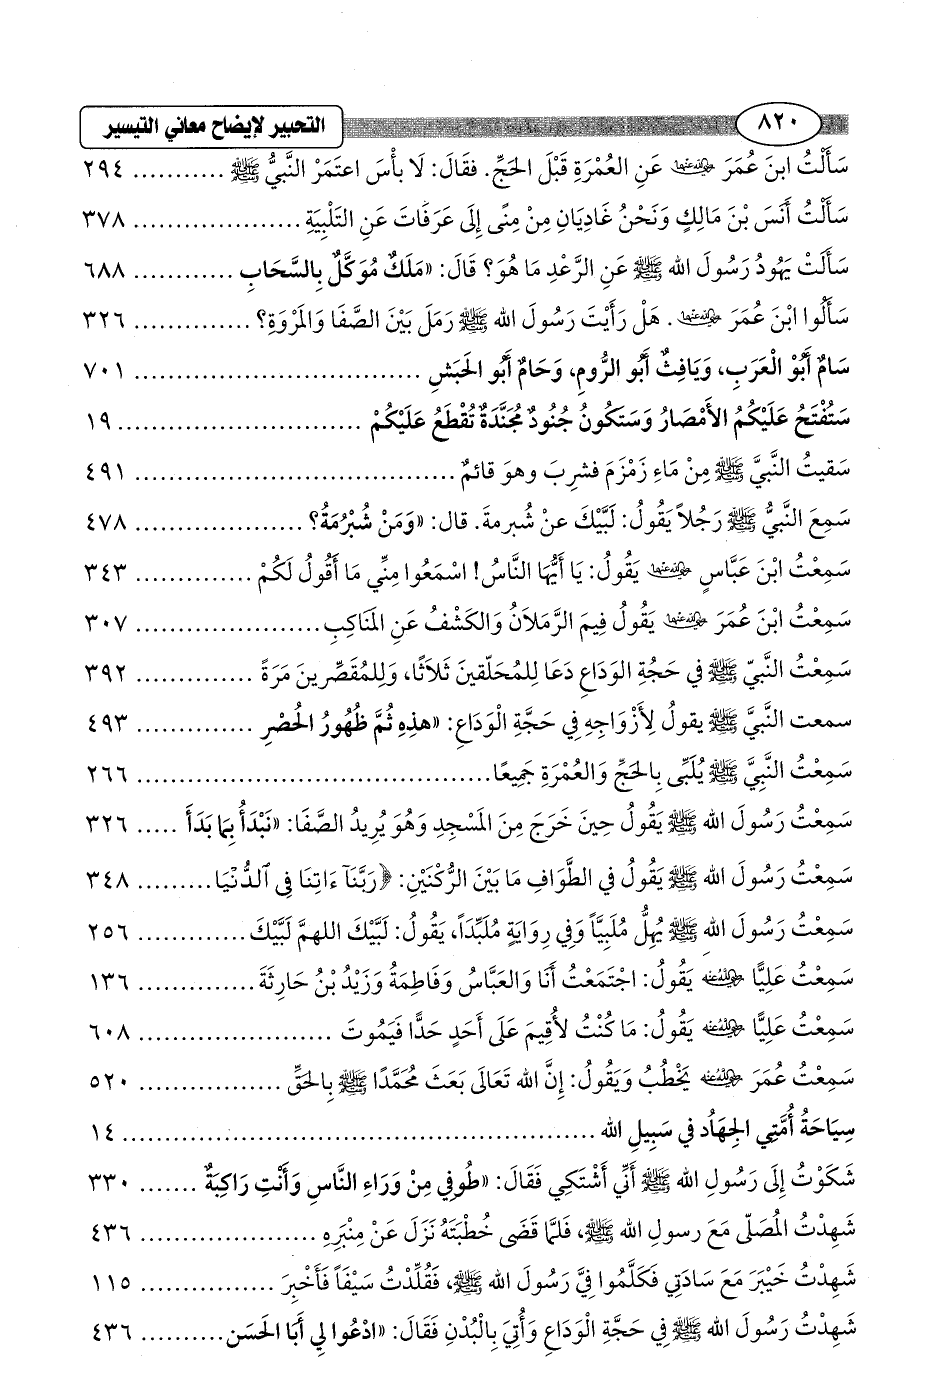 ٨٢٠ التحبير لإيضاح معاني التيسير
سَأَلْتُ ابنَ عُمَرَ رضي الله عنهما عَنِ العُمْرَةِ قَبْلَ الحَجِّ. فقَالَ: لَا بأْسَ اعتَمَرْ النَّبيُّ ﷺ ........... ٢٩٤
سَأَلْتُ أَنَسَ بْنَ مَالِكٍ وَنَحْنُ غَادِيَانِ مِنْ مِنًى إِلَى عَرَفَاتَ عَنِ التَّلْبِيَةِ .................... ٣٧٨
سَأَلَتْ يَهُودُ رَسُولَ الله ﷺ عَنِ الرَّعْدِ مَا هُوَ؟ قَالَ: «مَلَكٌ مُوَكَّلٌ بِالسَّحَابِ ............ ٦٨٨
سَأَلُوا ابْنَ عُمَرَ رضي الله عنهما. هَلْ رَأَيْتَ رَسُولَ الله ﷺ رَمَلَ بَيْنَ الصَّفَا وَالمَرْوَةِ؟ .............. ٣٢٦
سَامٌ أَبُوْ الْعَرَبِ، وَيَافِثٌ أَبُو الرُّومِ، وَحَامٌ أَبُو الحَبَشِ ................................... ٧٠١
سَتُفْتَحُ عَلَيْكُمُ الأَمْصَارُ وَسَتَكُونُ جُنُودٌ مُجَنَّدَةٌ تُقْطَعُ عَلَيْكُمْ .............................. ١٩
سَقيتُ النَّبيَّ ﷺ مِنْ مَاءِ زَمْزَمَ فشرِبَ وهوَ قائمٌ ....................................... ٤٩١
سَمِعَ النَّبيُّ ﷺ رَجُلاً يَقُولُ: لَبَّيْكَ عنْ شُبرمةَ. قال: «وَمَنْ شُبْرُمَةُ؟ .................... ٤٧٨
سَمِعْتُ ابْنَ عَبَّاسٍ رضي الله عنهما يَقُولُ: يَا أَيُّهَا النَّاسُ! اسْمَعُوا مِنِّي مَا أَقُولُ لَكُمْ .............. ٣٤٣
سَمِعْتُ ابْنَ عُمَرَ رضي الله عنهما يَقُولُ فِيمَ الرَّمَلاَنُ وَالكَشْفُ عَنِ المَنَاكِبِ ...................... ٣٠٧
سَمِعْتُ النَّبيّ ﷺ في حَجُةِ الوَدَاعِ دَعَا لِلمُحَلّقينَ ثَلاَثًا، وَلِلمُقَصِّرينَ مَرَةً .............. ٣٩٢
سمعت النَّبيَّ ﷺ يقولُ لِأَزْوَاجِهِ فِي حَجَّةِ الْوَدَاعِ: «هذِهِ ثُمَّ ظُهُورُ الحُصْرِ .............. ٤٩٣
سَمِعْتُ النَّبِيَّ ﷺ يُلَبِّى بِالحَجِّ وَالعُمْرَةِ جَمِيعًا .......................................... ٢٦٦
سَمِعْتُ رَسُولَ الله ﷺ يَقُولُ حِينَ خَرَجَ مِنَ المَسْجِدِ وَهُوَ يُرِيدُ الصَّفَا: «نَبْدَأُ بِمَا بَدَأَ ..... ٣٢٦
سَمِعْتُ رَسُولَ الله ﷺ يَقُولُ في الطَّوَافِ مَا بَيْنَ الرُّكْنَيْنِ: ﴿رَبَّنَآ ءَاتِنَا فِى ٱلدُّنْيَا ......... ٣٤٨
سَمِعْتُ رَسُولَ الله ﷺ يُهِلُّ مُلَبِيَّاً وَفِي رِوَايَةٍ مُلَبِّدَاً، يَقُولُ: لَبَّيْكَ اللهمَّ لَبَّيْكَ ............. ٢٥٦
سَمِعْتُ عَلِيًّا رضي الله عنه يَقُولُ: اجْتَمَعْتُ أَنَا وَالعَبَّاسُ وَفَاطِمَةُ وَزَيْدُ بْنُ حَارِثَةَ .............. ١٣٦
سَمِعْتُ عَلِيًّا رضي الله عنه يَقُولُ: مَا كُنْتُ لأُقِيمَ عَلَى أَحَدٍ حَدًّا فَيَمُوتَ ....................... ٦٠٨
سَمِعْتُ عُمَرَ رضي الله عنه يَخْطُبُ وَيَقُولُ: إِنَّ الله تَعَالَى بَعَثَ مُحَمَّدًا ﷺ بِالحَقِّ ................. ٥٢٠
سِيَاحَةُ أُمَّتِي الجِهَادُ في سَبِيلِ الله ......................................................... ١٤
شَكَوْتُ إِلَى رَسُولِ الله ﷺ أَنِّي أَشْتَكِي فَقَالَ: «طُوفِي مِنْ وَرَاءِ النَّاسِ وَأَنْتِ رَاكِبَةٌ ....... ٣٣٠
شَهِدْتُ المُصَلَّى مَعَ رسولِ الله ﷺ، فَلَمَّا قَضَى خُطْبَتَهُ نَزَلَ عَنْ مِنْبَرِهِ ..................... ٤٣٦
شَهِدْتُ خَيْبَرَ مَعَ سَادَتِي فَكَلَّمُوا فِيَّ رَسُولَ الله ﷺ، فَقُلِّدْتُ سَيْفَاً فَأُخْبِرَ ................ ١١٥
شَهِدْتُ رَسُولَ الله ﷺ فِي حَجَّةِ الْوَدَاعِ وَأُتِيَ بِالْبُدْنِ فَقَالَ: «ادْعُوا لِي أَبَا الحَسَن .......... ٤٣٦